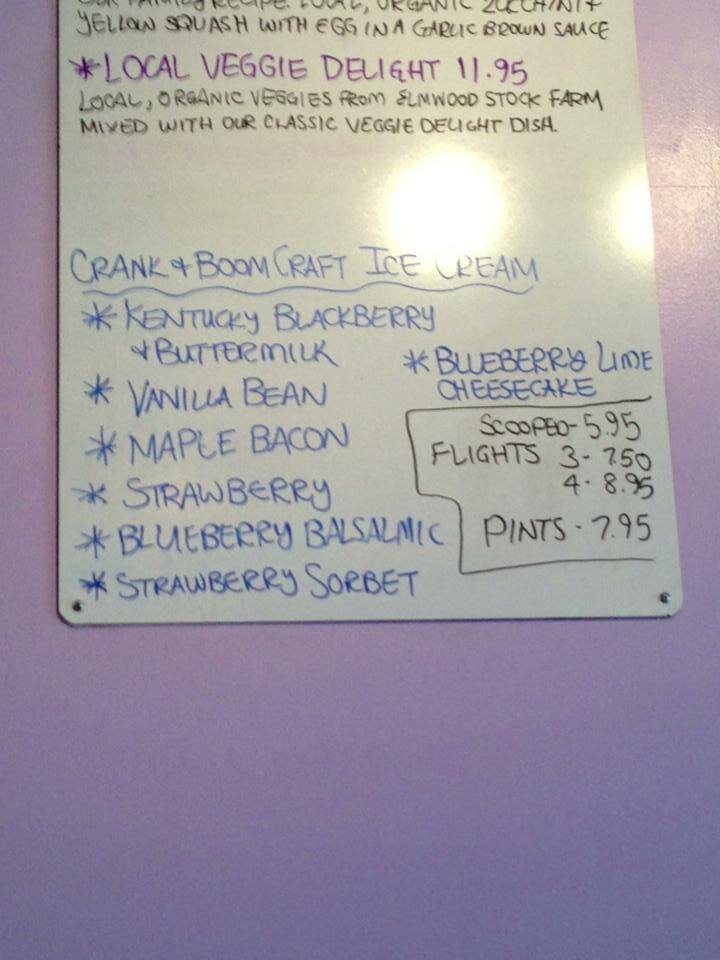 OUR FAMILY RECIPE. LOCAL, ORGANIC ZUCCHINI +
YELLOW SQUASH WITH EGG IN A GARLIC BROWN SAUCE
* LOCAL VEGGIE DELIGHT 11.95
LOCAL, ORGANIC VEGGIES FROM ELMWOOD STOCK FARM
MIXED WITH OUR CLASSIC VEGGIE DELIGHT DISH.
CRANK & BOOM CRAFT ICE CREAM
* KENTUCKY BLACKBERRY
& BUTTERMILK
* VANILLA BEAN
* MAPLE BACON
* STRAWBERRY
* BLUEBERRY BALSALMIC
* STRAWBERRY SORBET
* BLUEBERRY LIME
CHEESECAKE
SCOOPED - 5.95
FLIGHTS 3 - 7.50
4 - 8.95
PINTS - 7.95